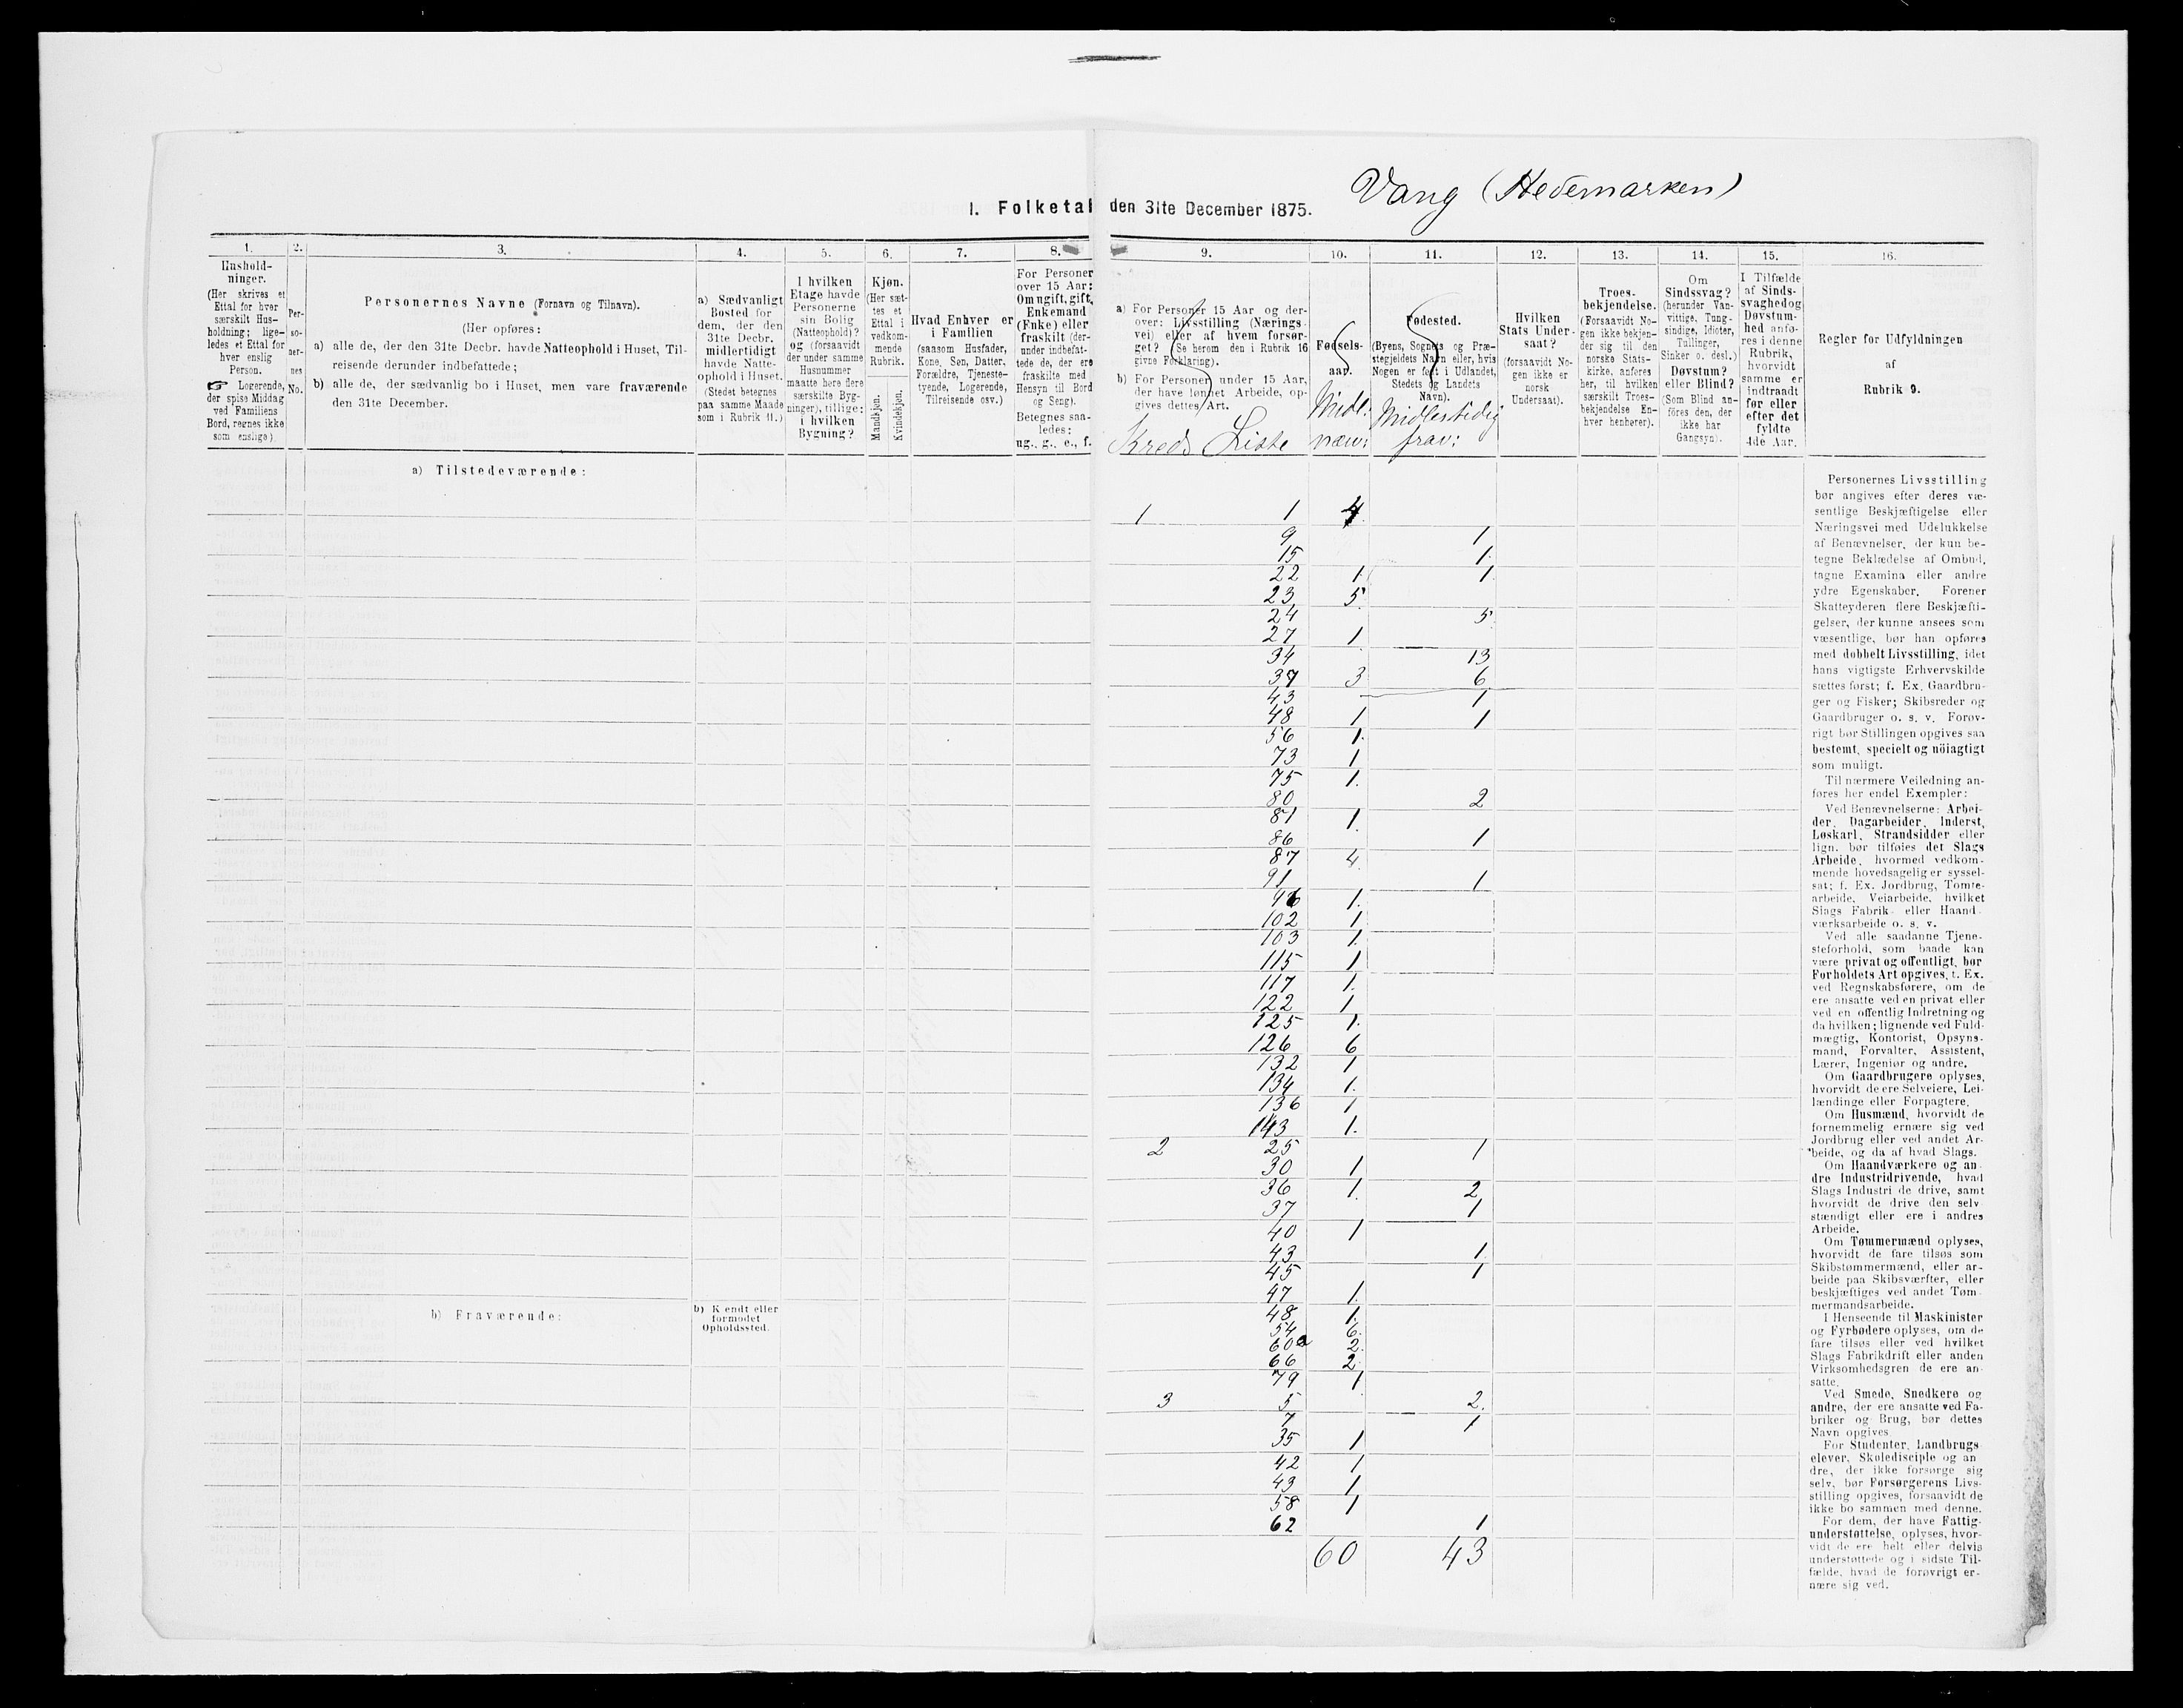 Vang (Hedemarken)
I. Folketal den 31te December 1875.
1.
Hushold-
ninger.
(Her skrives et
Ettal for hver
særskilt Hus-
holdning; lige-
ledes et Ettal for
hver enslig
Person.
☞ Logerende,
der spise Middag
ved Familiens
Bord, regnes ikke
som enslige)
2.
Per-
so-
ner-
nes
No.
3.
Personernes Navne (Fornavn og Tilnavn).
(Her opføres:
a) alle de, der den 31te Decbr. havde Natteophold i Huset, Til-
reisende derunder indbefattede;
b) alle de, der sædvanlig bo i Huset, men vare fraværende
den 31te December.
4.
a) Sædvanligt
Bosted for
dem, der den
31te Decbr.
midlertidigt
havde Natte-
ophold i Huset.
(Stedet betegnes
paa samme Maade
som i Rubrik 11.)
5.
I hvilken
Etage havde
Personerne
sin Bolig
(Natteophold)?
og (forsaavidt
der under samme
Husnummer
maatte høre flere
særskilte Byg-
ninger), tillige:
i hvilken
Bygning?
6.
Kjøn.
(Her sæt-
tes et
Ettal i
vedkom-
mende
Rubrik.
Mandkjøn.
Kvindekjøn.
7.
Hvad Enhver er
i Familien
(saasom Husfader,
Kone, Søn, Datter,
Forældre, Tjeneste-
tyende, Logerende,
Tilreisende osv.)
8.
For Personer
over 15 Aar:
Om ugift, gift,
Enkemand
(Enke) eller
fraskilt (der-
under indbefat-
tede de, der ere
fraskilte med
Hensyn til Bord
og Seng).
Betegnes saa-
ledes:
ug., g., e., f.
9.
a) For Personer 15 Aar og der-
over: Livsstilling (Nærings-
vei) eller af hvem forsør-
get? (Se herom den i Rubrik 16
givne Forklaring).
b) For Personer under 15 Aar,
der have lønnet Arbeide, op-
gives dettes Art.
Kreds Liste
10.
Fødsels-
aar.
Midl.
nærv:
11.
Fødested.
(Byens, Sognets og Præ-
stegjeldets Navn eller, hvis
Nogen er født i Udlandet,
Stedets og Landets
Navn).
Midlertidig
frav:
12.
Hvilken
Stats Under-
saat?
(forsaavidt No-
gen ikke er
norsk
Undersaat).
13.
Troes-
bekjendelse.
(Forsaavidt No-
gen ikke bekjen-
der sig til den
norske Stats-
kirke, anføres
her, til hvilken
særskilt Troes-
bekjendelse En-
hver henhører).
14.
Om
Sindssvag?
(herunder Van-
vittige, Tung-
sindige, Idioter,
Tullinger,
Sinker o. desl.)
Døvstum?
eller Blind?
(Som Blind an-
føres den, der
ikke har
Gangsyn).
15.
I Tilfælde
af Sinds-
svaghed og
Døvstum-
hed anfø-
res i denne
Rubrik,
hvorvidt
samme er
indtraadt
før eller
efter det
fyldte
4de Aar.
16.
Regler for Udfyldningen
af
Rubrik 9.
a) Tilstedeværende:
b) Fraværende:
b) Kjendt eller
formodet
Opholdssted.
1 1 4
9 1
15 1
22 1 1
23 5
24 5
27 1
34 13
37 3 6
43 1
48 1 1
56 1
73 1
75 1
80 2
81 1
86 1
87 4
91 1
96 1
102 1
103 1
115 1
117 1
122 1
125 1
126 6
132 1
134 1
136 1
143 1
2 25 1
30 1
36 1 2
37 1
40 1
43 1
45 1
47 1
48 1
54 6
60a 2
66 2
79 1
3 5 2
7 1
35 1
42 1
43 1
58 1
62 1
60 43
Personernes Livsstilling
bør angives efter deres væ-
sentlige Beskjæftigelse eller
Næringsvei med Udelukkelse
af Benævnelser, der kun be-
tegne Beklædelse af Ombud,
tagne Examina eller andre
ydre Egenskaber. Forener
Skatteyderen flere Beskjæfti-
gelser, der kunne ansees som
væsentlige, bør han opføres
med dobbelt Livsstilling, idet
hans vigtigste Erhvervskilde
sættes først; f. Ex. Gaardbru-
ger og Fisker; Skibsreder og
Gaardbruger o. s. v. Forøv-
rigt bør Stillingen opgives saa
bestemt, specielt og nöiagtigt
som muligt.
Til nærmere Veiledning an-
føres her endel Exempler:
Ved Benævnelserne: Arbei-
der, Dagarbeider, Inderst,
Løskarl, Strandsidder eller
lign. bør tilføies det Slags
Arbeide, hvormed vedkom-
mende hovedsagelig er syssel-
sat; f. Ex. Jordbrug, Tomte-
arbeide, Veiarbeide, hvilket
Slags Fabrik- eller Haand-
værksarbeide o. s. v.
Ved alle saadanne Tjene-
steforhold, som baade kan
være privat og offentligt, bør
Forholdets Art opgives, t. Ex.
ved Regnskabsførere, om de
ere ansatte ved en privat eller
ved en offentlig Indretning og
da hvilken; lignende ved Fuld-
mægtig, Kontorist, Opsyns-
mand, Forvalter, Assistent,
Lærer, Ingeniør og andre.
Om Gaardbrugere oplyses,
hvorvidt de ere Selveiere, Lei-
lændinge eller Forpagtere.
Om Husmænd, hvorvidt de
fornemmelig ernære sig ved
Jordbrug eller ved andet Ar-
beide, og da af hvad Slags.
Om Haandværkere og an-
dre Industridrivende, hvad
Slags Industri de drive, samt
hvorvidt de drive den selv-
stændigt eller ere i andres
Arbeide.
Om Tømmermænd oplyses,
hvorvidt de fare tilsøs som
Skibstømmermænd, eller ar-
beide paa Skibsværfter, eller
beskjæftiges ved andet Tøm-
mermandsarbeide.
I Henseende til Maskinister
og Fyrbødere oplyses, om de
fare tilsøs eller ved hvilket
Slags Fabrikdrift eller anden
Virksomhedsgren de ere an-
satte.
Ved Smede, Snedkere og
andre, der ere ansatte ved Fa-
briker og Brug, bør dettes
Navn opgives
For Studenter, Landbrugs-
elever, Skoledisciple og an-
dre, der ikke forsørge sig
selv, bør Forsørgerens Livs-
stilling opgives, forsaavidt de
ikke bo sammen med denne.
For dem, der have Fattig-
understøttelse, oplyses, hvor-
vidt de ere helt eller delvis
understøttede og i sidste Til-
fælde, hvad de forøvrigt er-
nære sig ved.